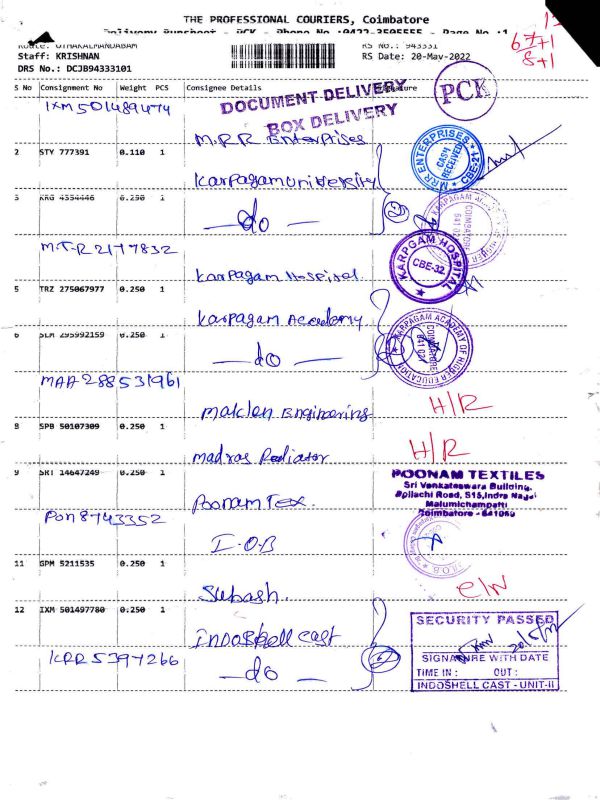 THE PROFESSIONAL COURIERS, Coimbatore
Delivery Runsheet - PCK - Phone No :0422-3505555 - Page No :1
Route: OTHAKALMANDABAM RS No.: 943331
Staff: KRISHNAN RS Date: 20-May-2022
DRS No.: DCJB94333101
67+1
8+1
S No Consignment No Weight PCS Consignee Details Signature
DOCUMENT DELIVERY
BOX DELIVERY
PCK
IXM501489474
M.R.R Enterprises
MRR ENTERPRISES
CASH RECEIVED
CBE-21
2 STY 777391 0.110 1
Karpagam University
3 KRG 4354446 0.250 1
do
KARPAGAM
COIMBATORE
641 021
MTR2177832
Karpagam Hospital
KARPGAM HOSPITAL
CBE-32
5 TRZ 275067977 0.250 1
Karpagam Academy
KARPAGAM ACADEMY OF HIGHER EDUCATION
COIMBATORE
641 021
6 SLM 295992159 0.250 1
do
MAA288531961
Maklen Engineering
H/R
8 SPB 50107309 0.250 1
Madras Radiator
H/R
9 SRT 14647249 0.250 1
Poonam Tex.
POONAM TEXTILES
Sri Venkateswara Building,
Pollachi Road, 515, Indra Nagar
Malumichampatti
Coimbatore - 641050
PON8743352
I.O.B
I.O.B.
11 GPM 5211535 0.250 1
Subash.
12 IXM 501497780 0.250 1
Indoshell cast
KRR5397266
do
SECURITY PASSED
20/5/22
SIGNATURE WITH DATE
TIME IN : OUT :
INDOSHELL CAST - UNIT-II